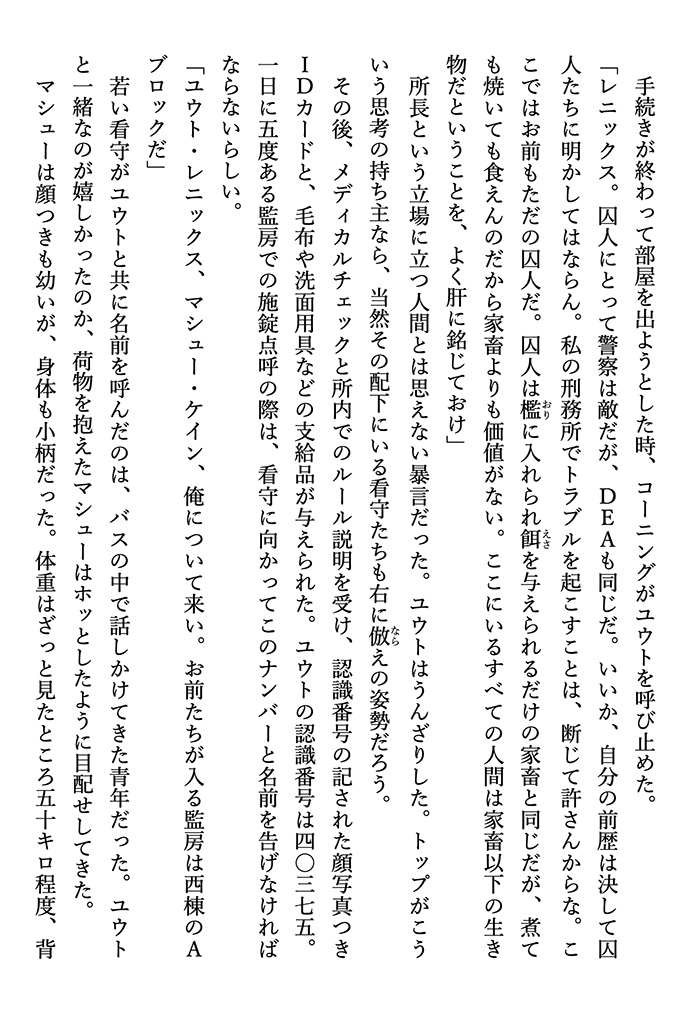 手続きが終わって部屋を出ようとした時、コーニングがユウトを呼び止めた。
「レニックス。囚人にとって警察は敵だが、DEAも同じだ。いいか、自分の前歴は決して囚
人たちに明かしてはならん。私の刑務所でトラブルを起こすことは、断じて許さんからな。こ
こではお前もただの囚人だ。囚人は檻おりに入れられ餌えさを与えられるだけの家畜と同じだが、煮て
も焼いても食えんのだから家畜よりも価値がない。ここにいるすべての人間は家畜以下の生き
物だということを、よく肝に銘じておけ」
所長という立場に立つ人間とは思えない暴言だった。ユウトはうんざりした。トップがこう
いう思考の持ち主なら、当然その配下にいる看守たちも右に倣ならえの姿勢だろう。
その後、メディカルチェックと所内でのルール説明を受け、認識番号の記された顔写真つき
IDカードと、毛布や洗面用具などの支給品が与えられた。ユウトの認識番号は四〇三七五。
一日に五度ある監房での施錠点呼の際は、看守に向かってこのナンバーと名前を告げなければ
ならないらしい。
「ユウト・レニックス、マシュー・ケイン、俺について来い。お前たちが入る監房は西棟のA
ブロックだ」
若い看守がユウトと共に名前を呼んだのは、バスの中で話しかけてきた青年だった。ユウト
と一緒なのが嬉しかったのか、荷物を抱えたマシューはホッとしたように目配せしてきた。
マシューは顔つきも幼いが、身体も小柄だった。体重はざっと見たところ五十キロ程度、背